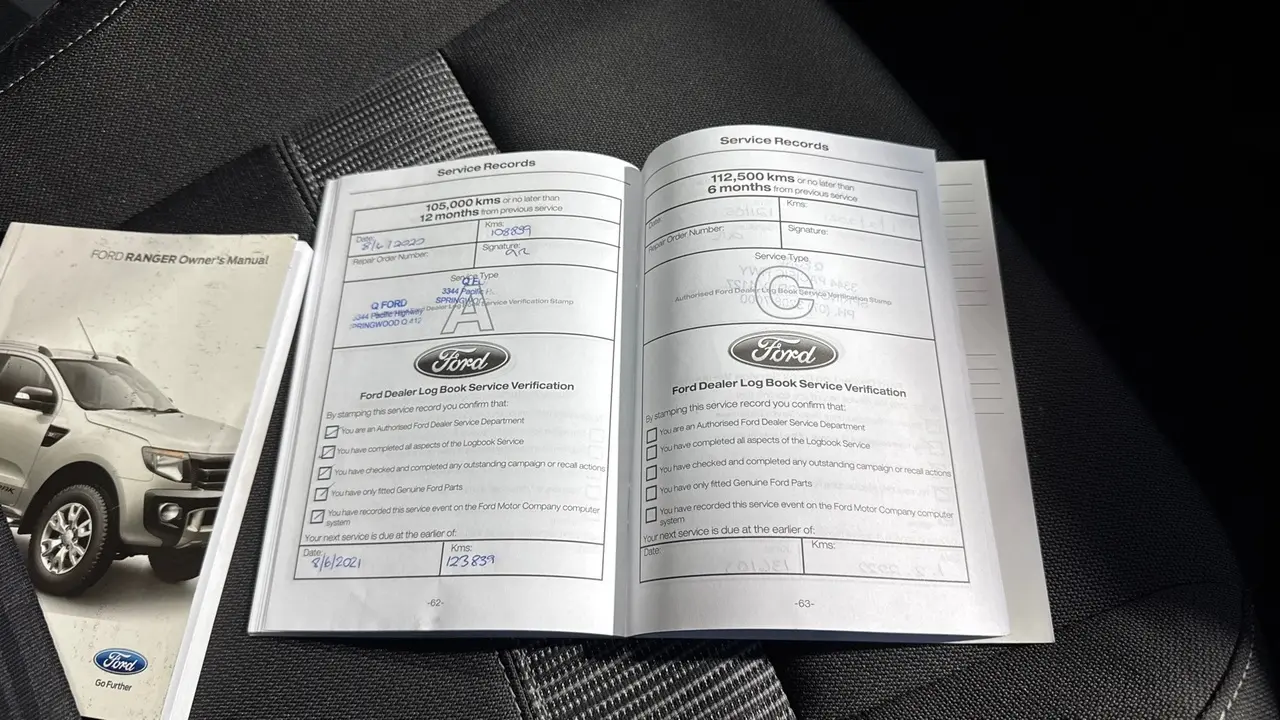 FORD RANGER Owner's Manual
Ford
Go Further
Service Records
105,000 kms or no later than
12 months from previous service
Date:
8/6/2020
Kms:
Repair Order Number:
Signature:
Service Type
3344 Pacific
Q FORD
3344 Pacific Highway
Dealer Log Book Service Verification Stamp
A
Ford
Ford Dealer Log Book Service Verification
By stamping this service record you confirm that:
You are an Authorised Ford Dealer Service Department
You have completed all aspects of the Logbook Service
You have checked and completed any outstanding campaign or recall actions
You have only fitted Genuine Ford Parts
You have recorded this service event on the Ford Motor Company computer
system
Your next service is due at the earlier of:
Date:
8/6/2021
Kms:
123839
-62-
Service Records
112,500 kms or no later than
6 months from previous service
Date:
Kms:
Repair Order Number:
Signature:
Service Type
Authorised Ford Dealer Log Book Service Verification Stamp
C
Ford
Ford Dealer Log Book Service Verification
By stamping this service record you confirm that:
You are an Authorised Ford Dealer Service Department
You have completed all aspects of the Logbook Service
You have checked and completed any outstanding campaign or recall actions
You have only fitted Genuine Ford Parts
You have recorded this service event on the Ford Motor Company computer
system
Your next service is due at the earlier of:
Date:
Kms:
-63-